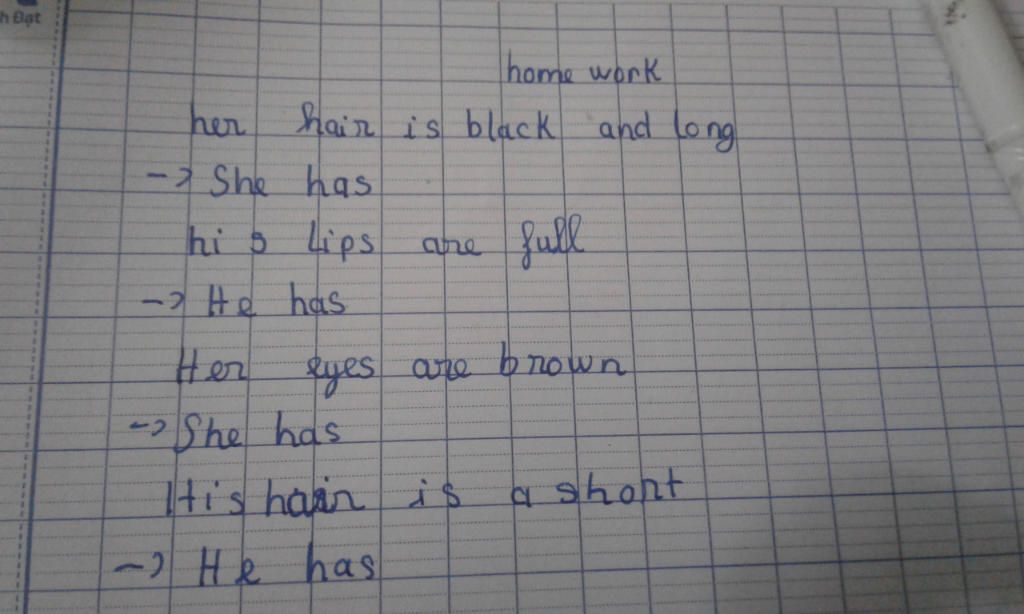 h Đạt
home work
her hair is black and long
-> She has
his lips are full
-> He has
Her eyes are brown
-> She has
His hair is a short
-> He has